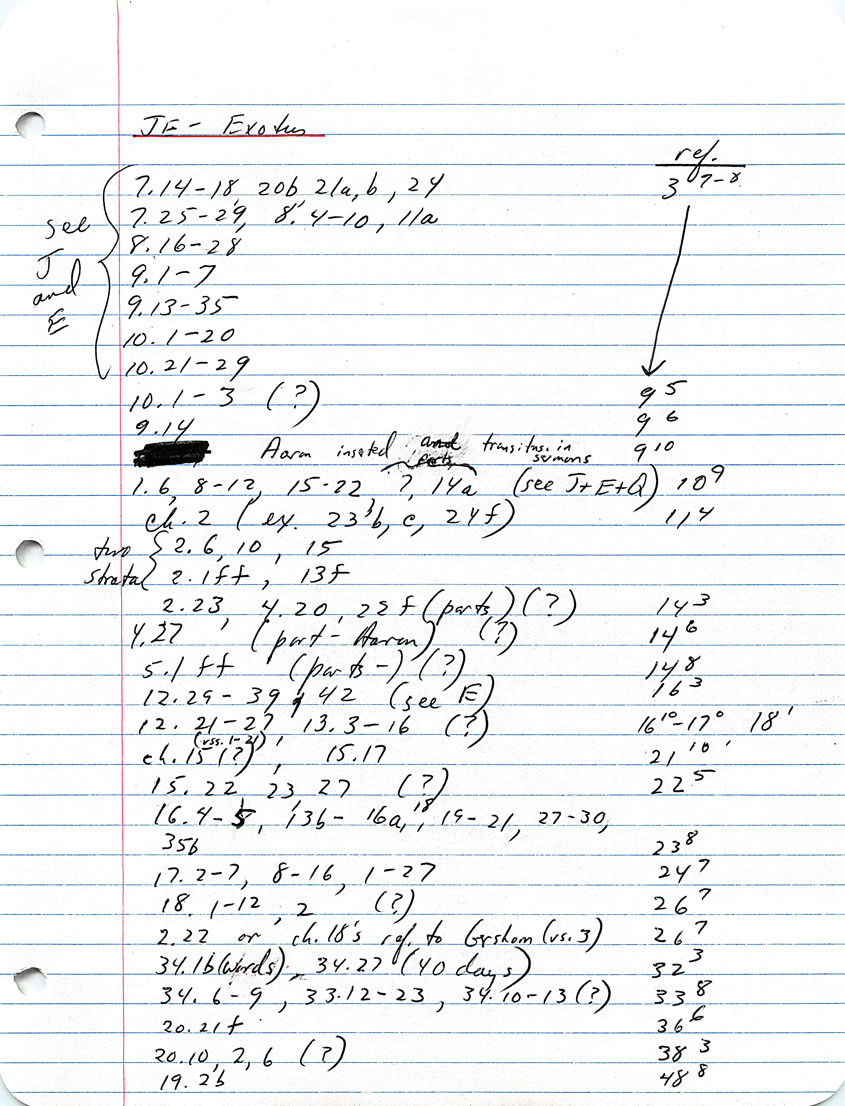 JE - Exodus
ref.
7.14-18, 20b 21a,b, 24 3 7-8
7.25-29, 8.4-10, 11a
8.16-28
9.1-7
9.13-35
10.1-20
10.21-29
see J and E
10.1-3 (?) 9 5
9.14 9 6
Aaron inserted parts in sermons 9 10
1.6, 8-12, 15-22 ?, 14a (see J+E+Q) 10 9
ch. 2 (ex. 23b, c, 24f) 11 4
two strata { 2.6, 10, 15
2.1ff, 13f
2.23, 4.20, 22f (parts) (?) 14 3
4.27 (part - Aaron) (?) 14 6
5.1ff (parts-) (?) 14 8
12.29-39, 42 (see E) 16 3
12.21-27, 13.3-16 (?) 16 10 - 17 0 18 1
(vss. 1-21)
ch. 15 (?), 15.17 21 10
15.22, 23, 27 (?) 22 5
16.4-5, 13b-16a, 18, 19-21, 27-30,
35b 23 8
17.2-7, 8-16, 1-27 24 7
18.1-12, 2 (?) 26 7
2.22 or ch. 18's ref. to Gershom (vs. 3) 26 7
34.1b (words), 34.27 (40 days) 32 3
34.6-9, 33.12-23, 34.10-13 (?) 33 8
20.21f 36 6
20.10, 2, 6 (?) 38 3
19.2b 48 8